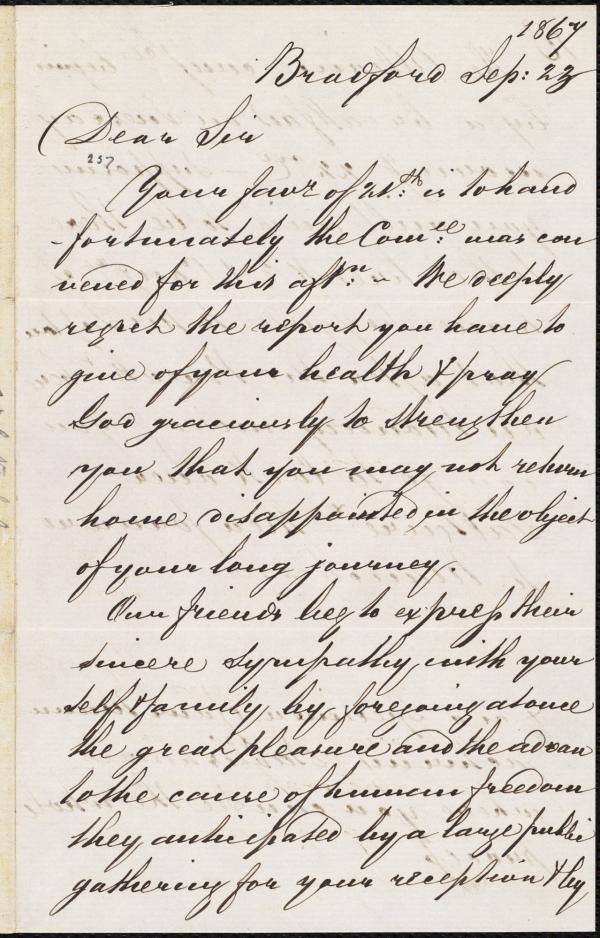 1867
Bradford Sep: 23
Dear Sir
257
Your favr of 21st: is to hand
- fortunately the Comee: was con
vened for this aftn: - We deeply
regret the report you have to
give of your health & pray
God graciously to strengthen
you that you may not return
home disappointed in the object
of your long journey.
Our friends beg to express their
sincere sympathy with your
self & family by foregoing at once
the great pleasure and the advan
to the cause of human freedom
they anticipated by a large public
gathering for your reception & by